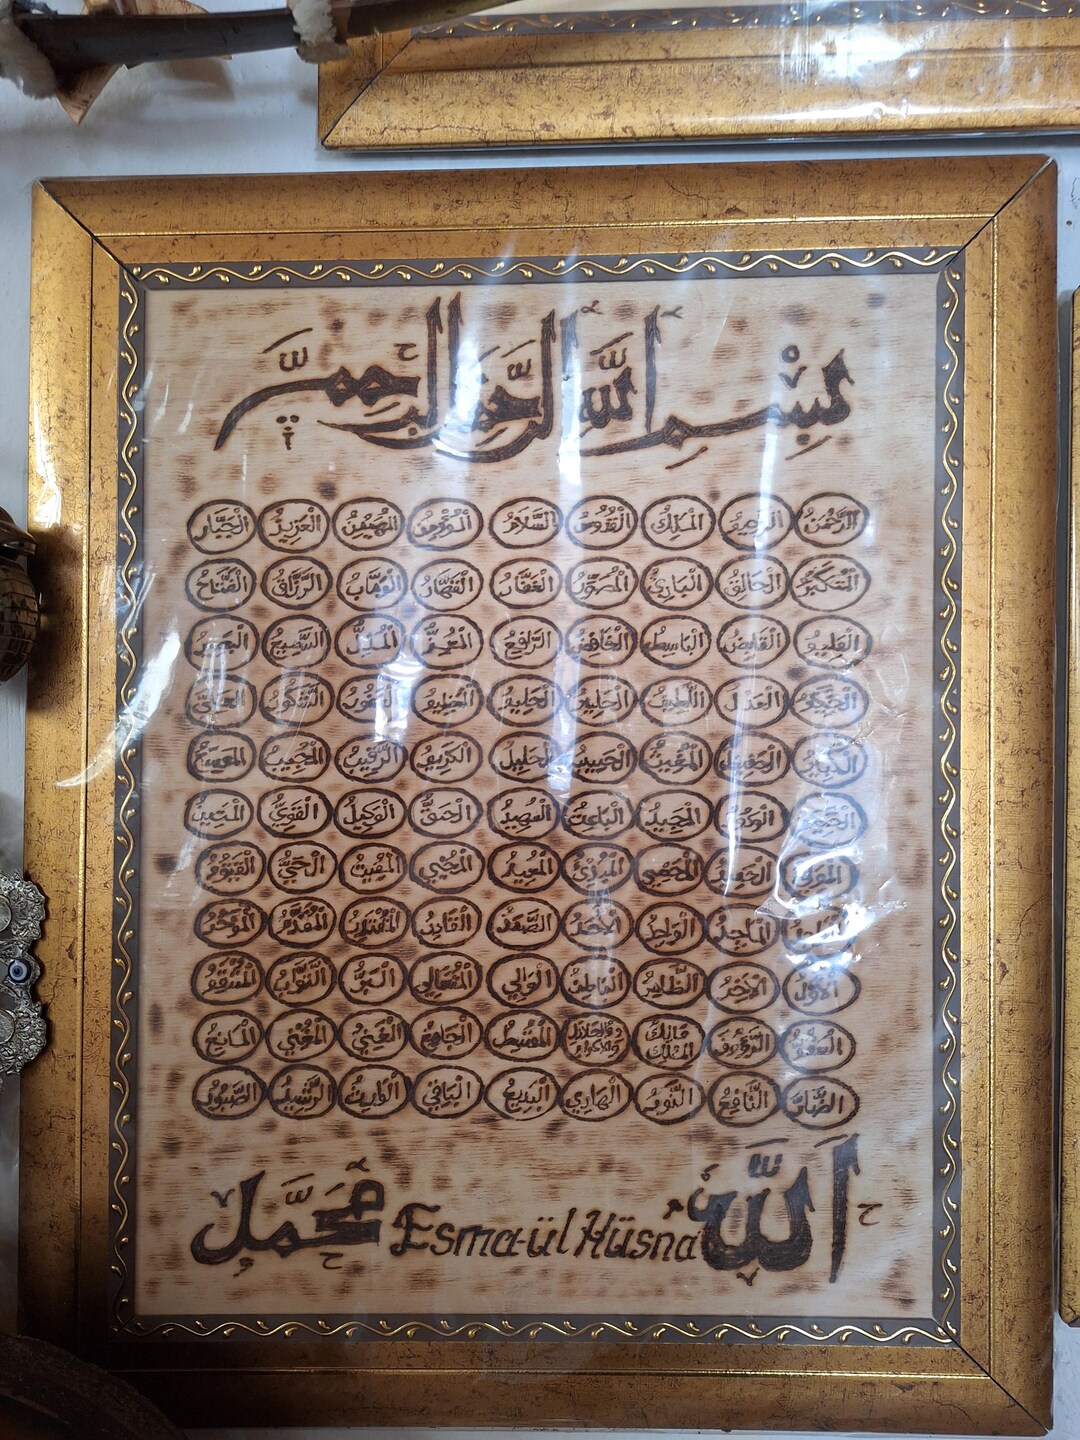 بسم الله الرحمن الرحيم
الرَّحْمٰنُ الرحيم المَلِكُ القُدُّوسُ السَّلَامُ المُؤْمِنُ المهيمن العَزِيزُ الجَبَّارُ
المتكبر الخَالِقُ البَارِئُ المُصَوِّرُ الغَفَّارُ القَهَّارُ الوَهَّابُ الرَّزَّاقُ الفَتَّاحُ
العليم القَابِضُ البَاسِطُ الخَافِضُ الرَّافِعُ المُعِزُّ المُذِلُّ السَّمِيعُ البصير
الحكم العدل اللطيف الخبير الحليم العظيم الغفور الشَّكُورُ العلي
الكبير الحفيظ المقيت الحسيب الجليل الكريم الرَّقِيبُ المُجِيبُ
الودود المَجِيدُ البَاعِثُ الشهيد الحَقُّ الوَكِيلُ القَوِيُّ المَتِينُ
المُحْصِي المبدئ المعيد المُحْيِي المميت الحَيُّ القَيُّومُ
المَاجِدُ الوَاحِدُ الأَحَدُ الصَّمَدُ القَادِرُ المُقْتَدِرُ المُقَدِّمُ المؤخر
الأَوَّلُ الآخِرُ الظَّاهِرُ البَاطِنُ الوَالِي المُتَعَالِي البَرُّ التَّوَّابُ المنتقم
العفو الرؤوف مَالِكُ المُلْكِ ذو الجلال والاكرام المُقْسِطُ الجَامِعُ الغَنِيُّ المُغْنِي المَانِعُ
الضَّارُّ النَّافِعُ النُّورُ الهَادِي البَدِيعُ البَاقِي الوَارِثُ الرَّشِيدُ الصَّبُورُ
اللّٰه Esma-ül Hüsna محمد